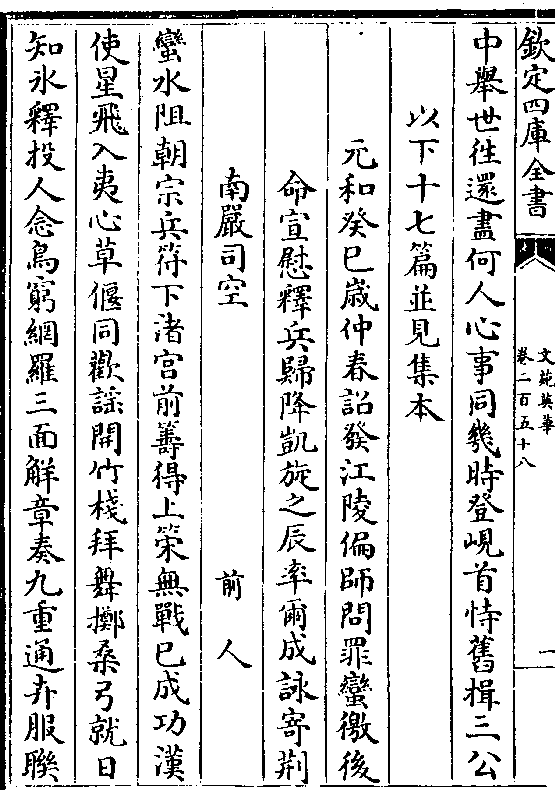 欽定四庫全書
文苑英華
卷二百五十八
一
中舉世徃還盡何人心事同幾時登峴首恃舊揖三公
以下十七篇並見集本
元和癸巳歳仲春詔發江陵偏師問罪蠻徼後
命宣慰釋兵歸降凱旋之辰率爾成詠寄荆
南嚴司空 前人
蠻水阻朝宗兵符下渚宫前籌得上䇿無戰已成功漢
使星飛入夷心草偃同歡謡開竹棧拜舞擲桑弓就日
知氷釋投人念鳥窮網羅三面觧章奏九重通卉服聨